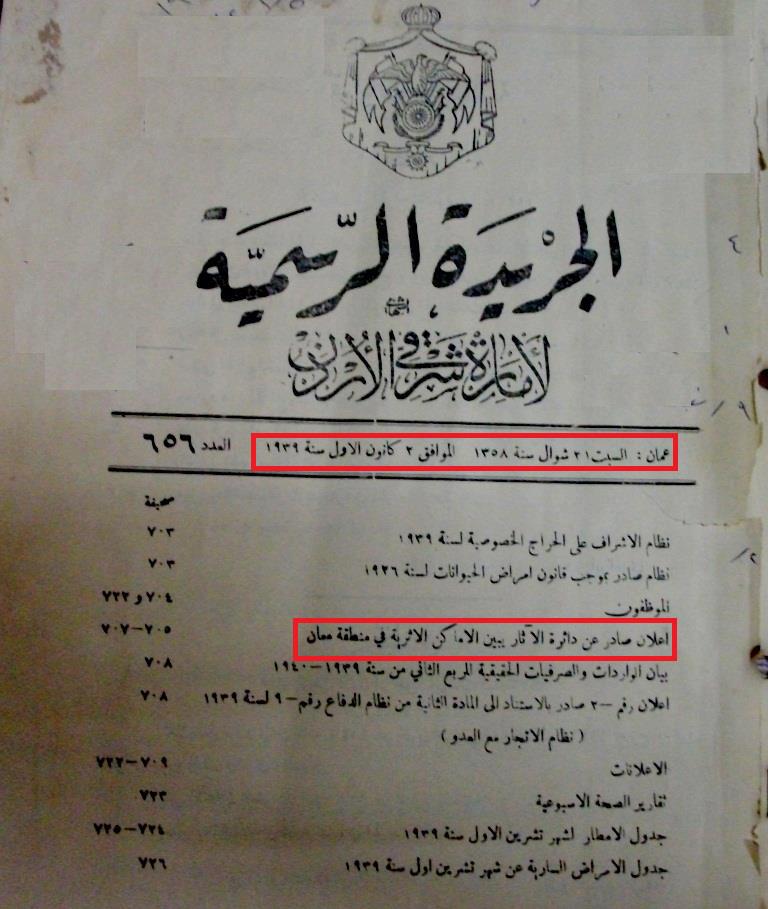 الجريدة الرسمية
لأمارة شرقي الأردن
عمان : السبت ٢١ شوال سنة ١٣٥٨ الموافق ٢ كانون الاول سنة ١٩٣٩ العدد ٦٥٦
صحيفة
نظام الاشراف على الحراج الخصوصية لسنة ١٩٣٩ ٧٠٣
نظام صادر بموجب قانون امراض الحيوانات لسنة ١٩٢٦ ٧٠٣
الموظفون ٧٠٤ و ٧٢٢
اعلان صادر عن دائرة الآثار يبين الاماكن الاثرية في منطقة معان ٧٠٥-٧٠٧
بيان الواردات والصرفيات الحقيقية للمربع الثاني من سنة ١٩٣٩-١٩٤٠ ٧٠٨
اعلان رقم -٢ صادر بالاستناد الى المادة الثانية من نظام الدفاع رقم-٩ لسنة ١٩٣٩ ٧٠٨
( نظام الاتجار مع العدو )
الاعلانات ٧٠٩-٧٢٢
تقارير الصحة الاسبوعية ٧٢٣
جدول الامطار لشهر تشرين الاول سنة ١٩٣٩ ٧٢٤-٧٢٥
جدول الامراض السارية عن شهر تشرين اول سنة ١٩٣٩ ٧٢٦